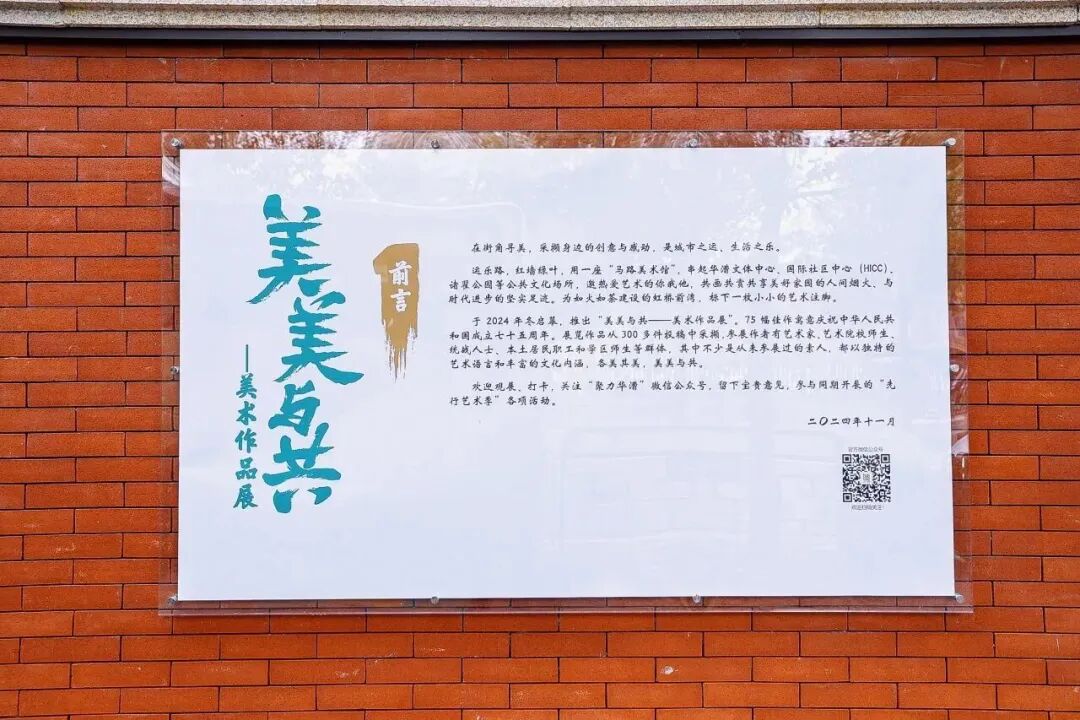 美美与共
——美术作品展
前言
在街角寻美，采撷身边的创意与感动，是城市之远、生活之乐。
运乐路，红墙绿叶，用一座“马路美术馆”，串起华漕文体中心、国际社区中心（HICC），
诸翟公园等公共文化场所，邀热爱艺术的你我他，共画共赏共享美好家园的人间烟火、与
时代进步的坚实足迹。为如火如荼建设的虹桥前湾，标下一枚小小的艺术注脚。
于 2024 年冬启幕，推出“美美与共——美术作品展”。75 幅佳作寓意庆祝中华人民共
和国成立七十五周年。展览作品从 300 多件投稿中采撷，参展作者有艺术家、艺术院校师生、
统战人士、本土居民职工和学区师生等群体，其中不少是从未参展过的素人，都以独特的
艺术语言和丰富的文化内涵，各美其美，美美与共。
欢迎观展、打卡，关注“聚力华漕”微信公众号，留下宝贵意见，参与同期开展的“先
行艺术季”各项活动。
二〇二四年十一月
官方微信公众号
欢迎扫码关注！